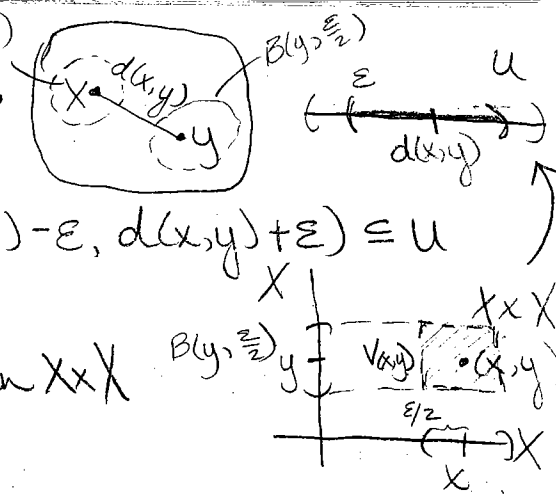 )
x d(x,y) y
B(y, ε/2)
ε U
d(x,y)
)-ε, d(x,y)+ε) ⊆ U
X
X×X
B(y, ε/2) y V(x,y) (x,y)
n X×X
ε/2
X
x